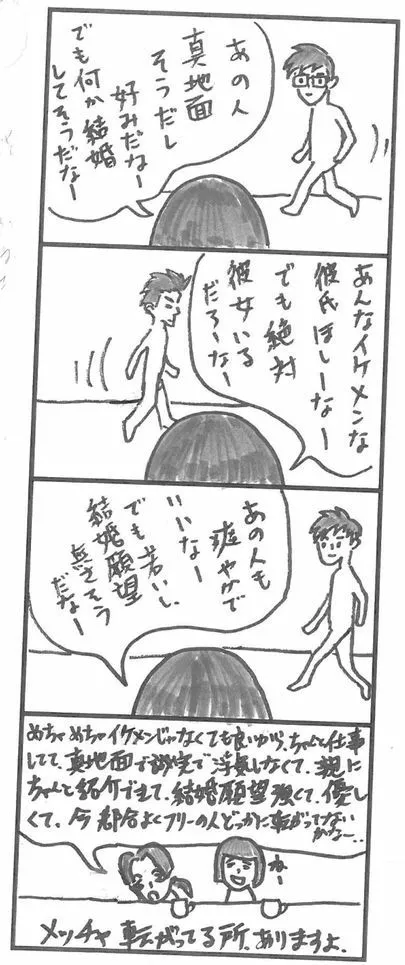 あの人
真地面
そうだし
好みだなー
でも何か結婚
してそうだなー
あんなイケメンな
彼氏ほしーなー
でも絶対
彼女いる
だろーなー
あの人も
爽やかで
いいなー
でも若いし、
結婚願望
無さそう
だなー
めちゃめちゃイケメンじゃなくても良いから、ちゃんと仕事
してて、真地面で誠実で浮気しなくて、親に
ちゃんと紹介できて、結婚願望強くて、優し
くて、今都合よくフリーの人どっかに転がってない
かなー…
ねー
メッチャ転がってる所、ありますよ。